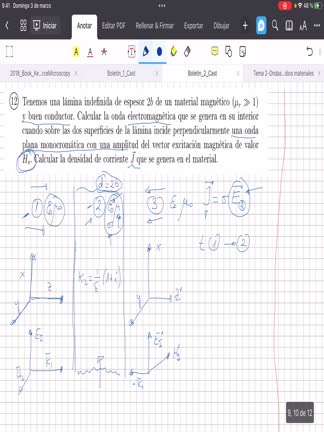 9:41 Domingo 3 de marzo
48 %
Iniciar Anotar Editar PDF Rellenar y Firmar Exportar Dibujar
2018_Book_Ke...roelMicroscopy Boletin_1_Cast Boletin_2_Cast Tema 2-Ondas...dios materiales
12 Tenemos una lámina indefinida de espesor 2b de un material magnético (μr ≫ 1)
y buen conductor. Calcular la onda electromagnética que se genera en su interior
cuando sobre las dos superficies de la lámina incide perpendicularmente una onda
plana monocromática con una amplitud del vector excitación magnética de valor
H₀. Calcular la densidad de corriente J⃗ que se genera en el material.
d=2b
1 2 3 ε₀ μ₀
J = σ E₂
t 1 → 2
x x
k₂ = 1/δ (1+i)
z
y y
9, 10 de 12